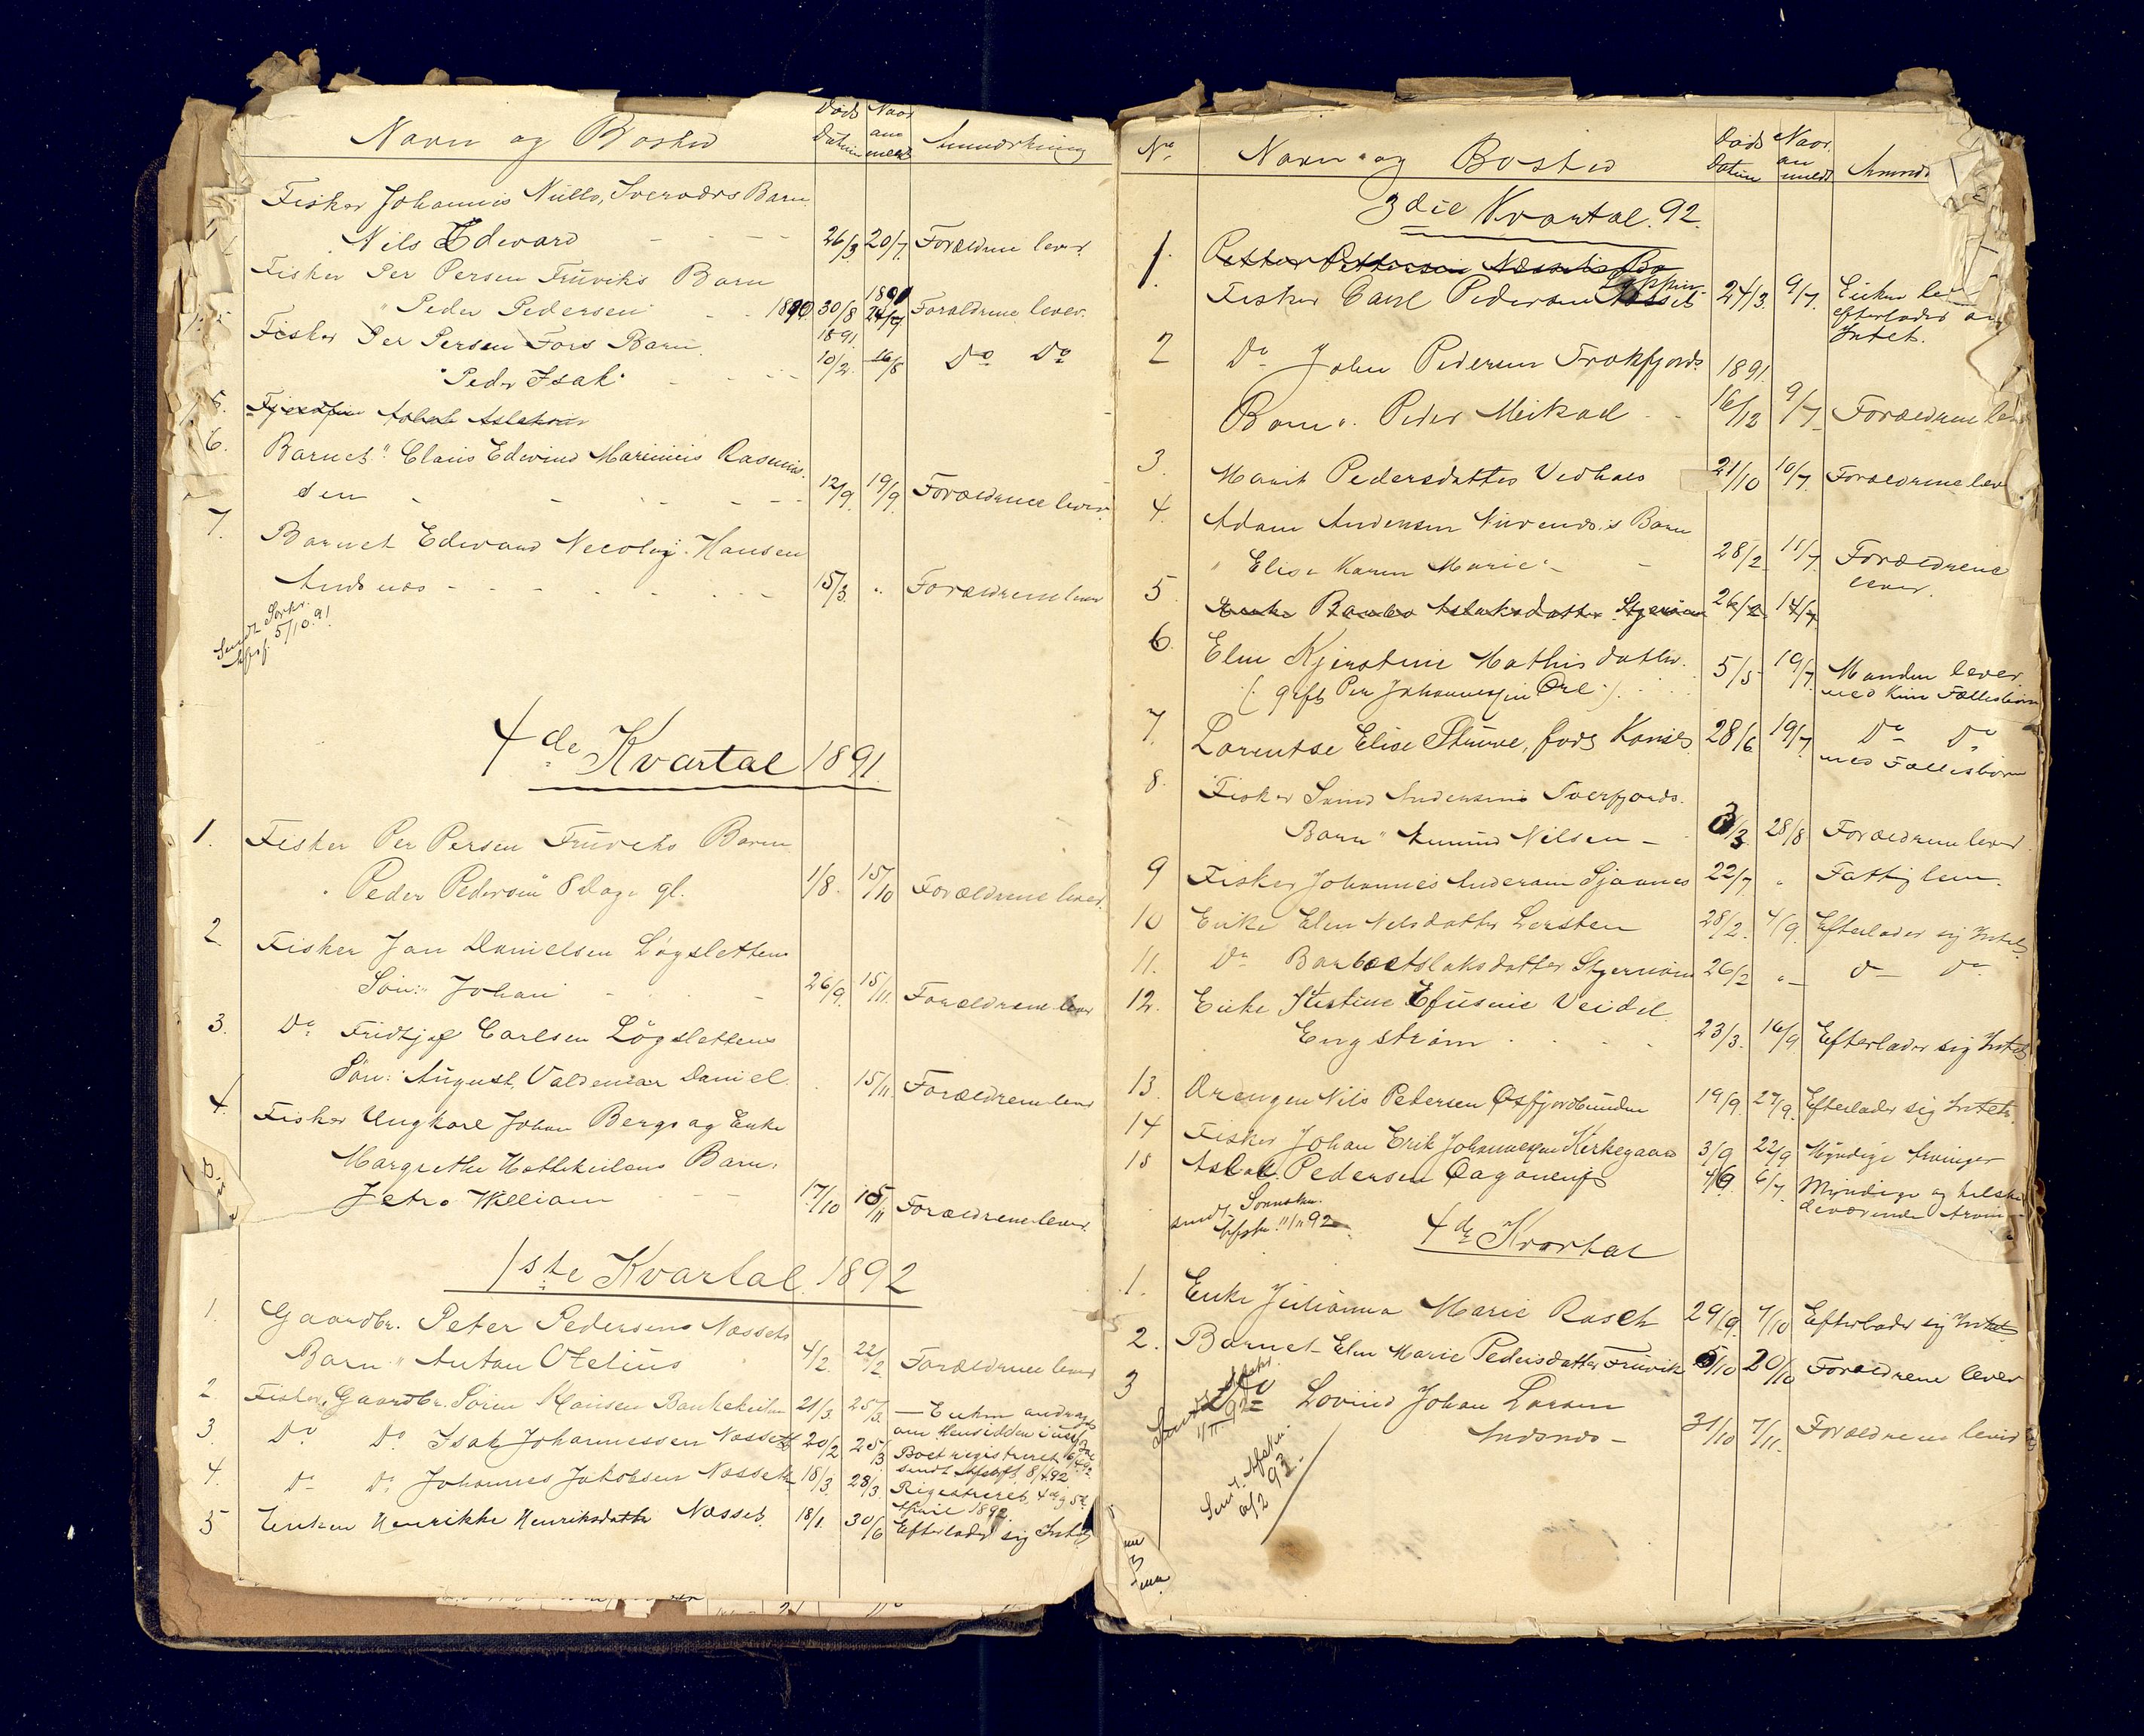 Navn og Bosted
Døds Datum
Naar anmeldt
Anmærkning
Fisker Johannes Nills, Sverværs Barn
Nils Edward - - - - 26/3. 20/7. Forældrene lever.
Fisker Per Persen Truviks Barn
"Peder Pedersen - - 1890 30/8 1891 Forældrene lever.
Fisker Per Persen Fors Barn 1891
"Peder Isak" - - - 10/2. 16/8 Do Do
5.
6. Barnet "Claus Edwind Marinius Rasmus
sen - - - - - 12/9. 19/9. Forældrene lever.
7. Barnet Edward Necolaj Hansen
Andsnæs - - - - - 15/3. " Forældrene lever
Sendt Sorkr.
Afsf. 5/10.91
4de Kvartal 1891.
1. Fisker Per Persen Truviks Barn
" Peder Pedersen 8 Dage gl. 1/8. 15/10 Forældrene lever.
2. Fisker Jan Danielsen Løgslettens
Søn: "Johan" - - - 26/9. 15/11. Forældrene lever
3. Do Fridtjof Carlsen Løgslettens
Søn: August Valdemar Daniel. 15/11 Forældrene lever
4. Fisker Ungkarl Johan Bergs og Enke
Margrethe Barn.
Jetro William - - 17/10 15/11 Forældrene lever.
1ste Kvartal 1892
1. Gaardbr. Peter Pedersens Næssets
Barn "Anton Otelius 4/2. 22/2 Forældrene lever
2. Fisker, Gaardbr. Søren Hansen Bankekeilen 21/3. 25/3. - Enken andrages
om Hensidden i uskf
3. Do Do Isak Johannessen Næsset 20/2 25/3 Boet registreret
sendt Afskft. 8/4.92
4. Do Do Johannes Jakobsen Næsset 18/3. 28/3. Registreret, 4de og 5te
April 1892
5 Enken Henrikke Henriksdatter Næsset. 18/1. 30/6 Efterlader sig Intet
No.
Navn og Bosted
Døds Datum
Naar anmeldt
Anmærk
3die Kvartal. 92.
1. Petter Pettersen Næssets Bo
Fisker Carl Pedersen Næsset 24/3. 9/7. Enken le
efterlades
Intet.
2 Do John Pedersen Trokfjords 1891.
Barn ". Peder Meikael - - 16/12 9/7 Forældrene lev
3. Marit Pedersdatter Vedhaes 21/10 10/7. Forældrene lev
4. Adam Andersen Nuvends's Barn
" Elise Karen Marie" - - 28/2. 11/7. Forældrene
lever.
5. Enke Barbo Aslaksdatter Stjernøen 26/2. 14/7.
6. Elen Kjerstine Mathisdatter. 5/5 19/7. Manden lever
(: gift Per Johannessen Øre :) . . . med kun Fællesbørn
7. Lorentse Elise Struve, født Hansen 28/6 19/7. Do Do
med Fællesbørn
8. Fisker Svend Andersens Tverfjords.
Barn "Amund Nilsen - 3/3. 28/8 Forældrene lever
9 Fisker Johannes Andersen Sjaanæs 22/7 " Fattiglem.
10 Enke Elen Nilsdatter Lersten 28/2. 4/9. Efterlader sig Intet
11. Do Barbo Aslaksdatter Stjernøen 26/2 "- Do Do
12. Enke Kristine Efusine Veidel
Engstrøm . . . . 23/3. 16/9 Efterlader sig Intet
13. Drengen Nils Pedersen Øsfjordbunden 19/9. 27/9. Efterlader sig Intet.
14 Fisker Johan Erik Johannessen Kirkegaard 3/9 22/9 Myndige Arvinger
15 Aslak Pedersen 4/6. 6/7. Myndige og
sendt Sorensk.
Afsk. 11/11 92.
4de Kvartal
1. Enke Julianna Marie Rasch 29/9. 7/10 Efterlader sig Intet
2. Barnet Elen Marie Pedersdatter Truvik 5/10 20/10 Forældrene lever
3 Do Lovind Johan Larsen
Andsnæs - 31/10 7/11. Forældrene lever
Sendt Afskr.
1/11 92
Sendt Afskr.
6/2 93.